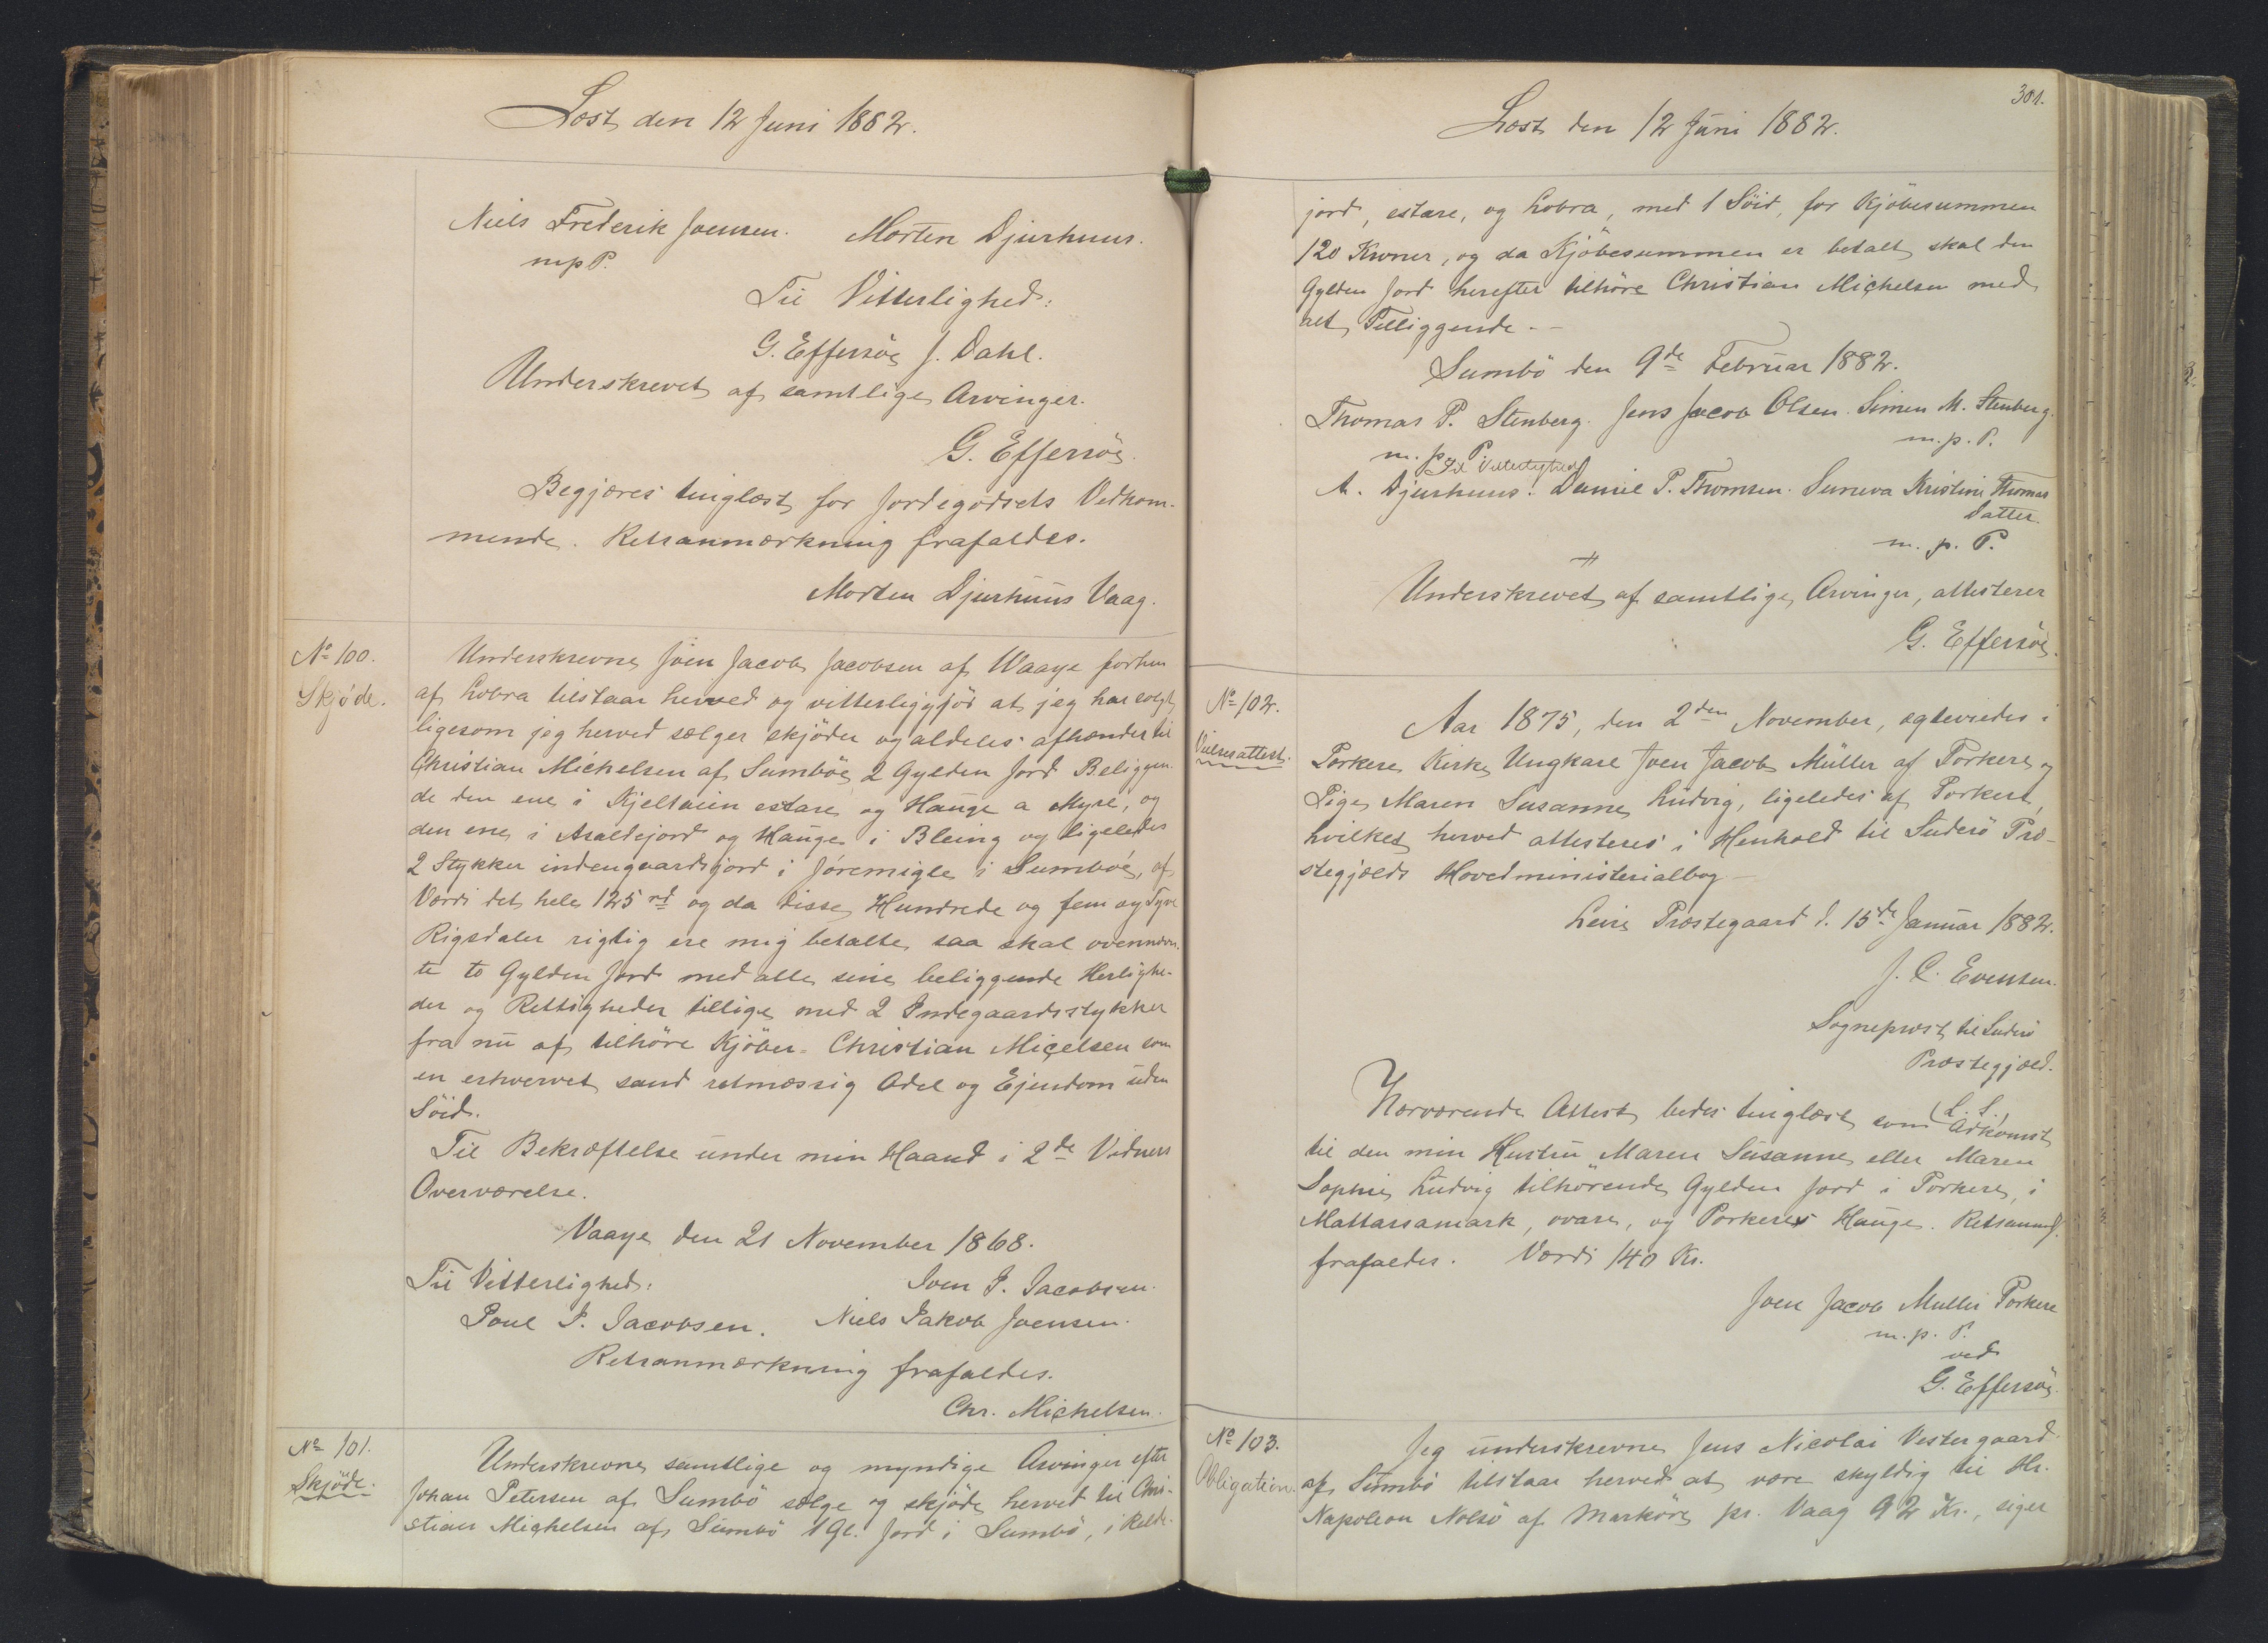 Læst den 12 Juni 1882.
Niels Frederik Joensen. Morten Djurhuus.
mpP.
Til Vitterlighed:
G. Effersöe J. Dahl.
Underskrevet af samtlige Arvinger.
G. Effersöe.
Begjæres tinglæst for Jordegodsets Vedkom-
mende. Retsanmærkning frafaldes.
Morten Djurhuus Vaag.
No 100.
Skjöde.
Underskrevne Joen Jacob Jacobsen af Waaye forhen
af Lobra tilstaar herved og vitterliggjör at jeg har solgt
ligesom jeg herved sælger skjöder og aldeles afhænder til
Christian Michelsen af Sumböe 2 Gylden Jord Beliggen-
de den ene i Kjeltaien estare og Hauge a Myre, og
den ene i Araldejord og Hauge i Bleing og ligeledes
2 Stykker indengaardsjord i Jöremigle i Sumböe, af
Værdi det hele 125 rd og da disse Hundrede og fem og Tyve
Rigsdaler rigtig ere mig betalte saa skal ovennævn-
te to Gylden Jord med alle sine beliggende Herlighe-
der og Rettigheder tillige med 2 Indegaardsstykker
fra nu af tilhöre Kjöber= Christian Miçelsen som
en erhvervet sand retmæssig Odel og Ejendom uden
Söid.
Til Bekræftelse under min Haand i 2de Vidners
Overværelse.
Vaaye den 21 November 1868.
Til Vitterlighed: Joen J. Jacobsen.
Poul J. Jacobsen. Niels Jakob Joensen.
Retsanmærkning frafaldes.
Chr. Michelsen.
No 101.
Skjöde.
Underskrevne samtlige og myndige Arvinger efter
Johan Petersen af Sumbö sælge og skjöde herved til Chri-
stian Michelsen af Sumbö 1 Gl. Jord i Sumbö, i Kelde-
301.
Læst den 12 Juni 1882.
jord, estare, og Lobra, med 1 Söid, for Kjöbesummen
120 Kroner, og da Kjöbesummen er betalt skal den
Gylden Jord herefter tilhöre Christian Michelsen med
alt Tilliggende. —
Sumbö den 9de Februar 1882.
Thomas P. Stenberg. Jens Jacob Olsen. Simen M. Stenberg.
m. p. P. m. p. P.
Til Vitterlighed
M. Djurhuus. Daniel P. Thomsen. Sunneva Kristine Thomas
Datter.
m. p. P.
Underskrevet af samtlige Arvinger, attesterer
G. Effersöe.
No 102.
Vielsesattest.
Aar 1875, den 2den November, ægteviedes i
Porkere Kirke Ungkarl Joen Jacob Müller af Porkere og
Pige Maren Susanne Ludvig, ligeledes af Porkere,
hvilket herved attesteres i Henhold til Suderö Præ-
stegjelds Hovedministerialbog —
Leire Præstegaard d. 15de Januar 1882.
J. C. Evensen.
Sognepræst til Suderö
Præstegjeld.
(L. S.)
Nærværende Attest bedes tinglæst som Adkomst
til den min Hustru Maren Susanne eller Maren
Sophie Ludvig tilhörende Gylden Jord i Porkere, i
Mattarsamark, ovare, og Porkeres Hauge. Retsanm.
frafaldes. Værdi 140 Kr.
Joen Jacob Muller Porkere
m. p. P.
ved
G. Effersöe.
No 103.
Obligation.
Jeg underskrevne Jens Nicolai Vestergaard
af Sumbö tilstaar herved at være skyldig til Hr.
Napoleon Nolsö af Marköre pr. Vaag 92 Kr., siger